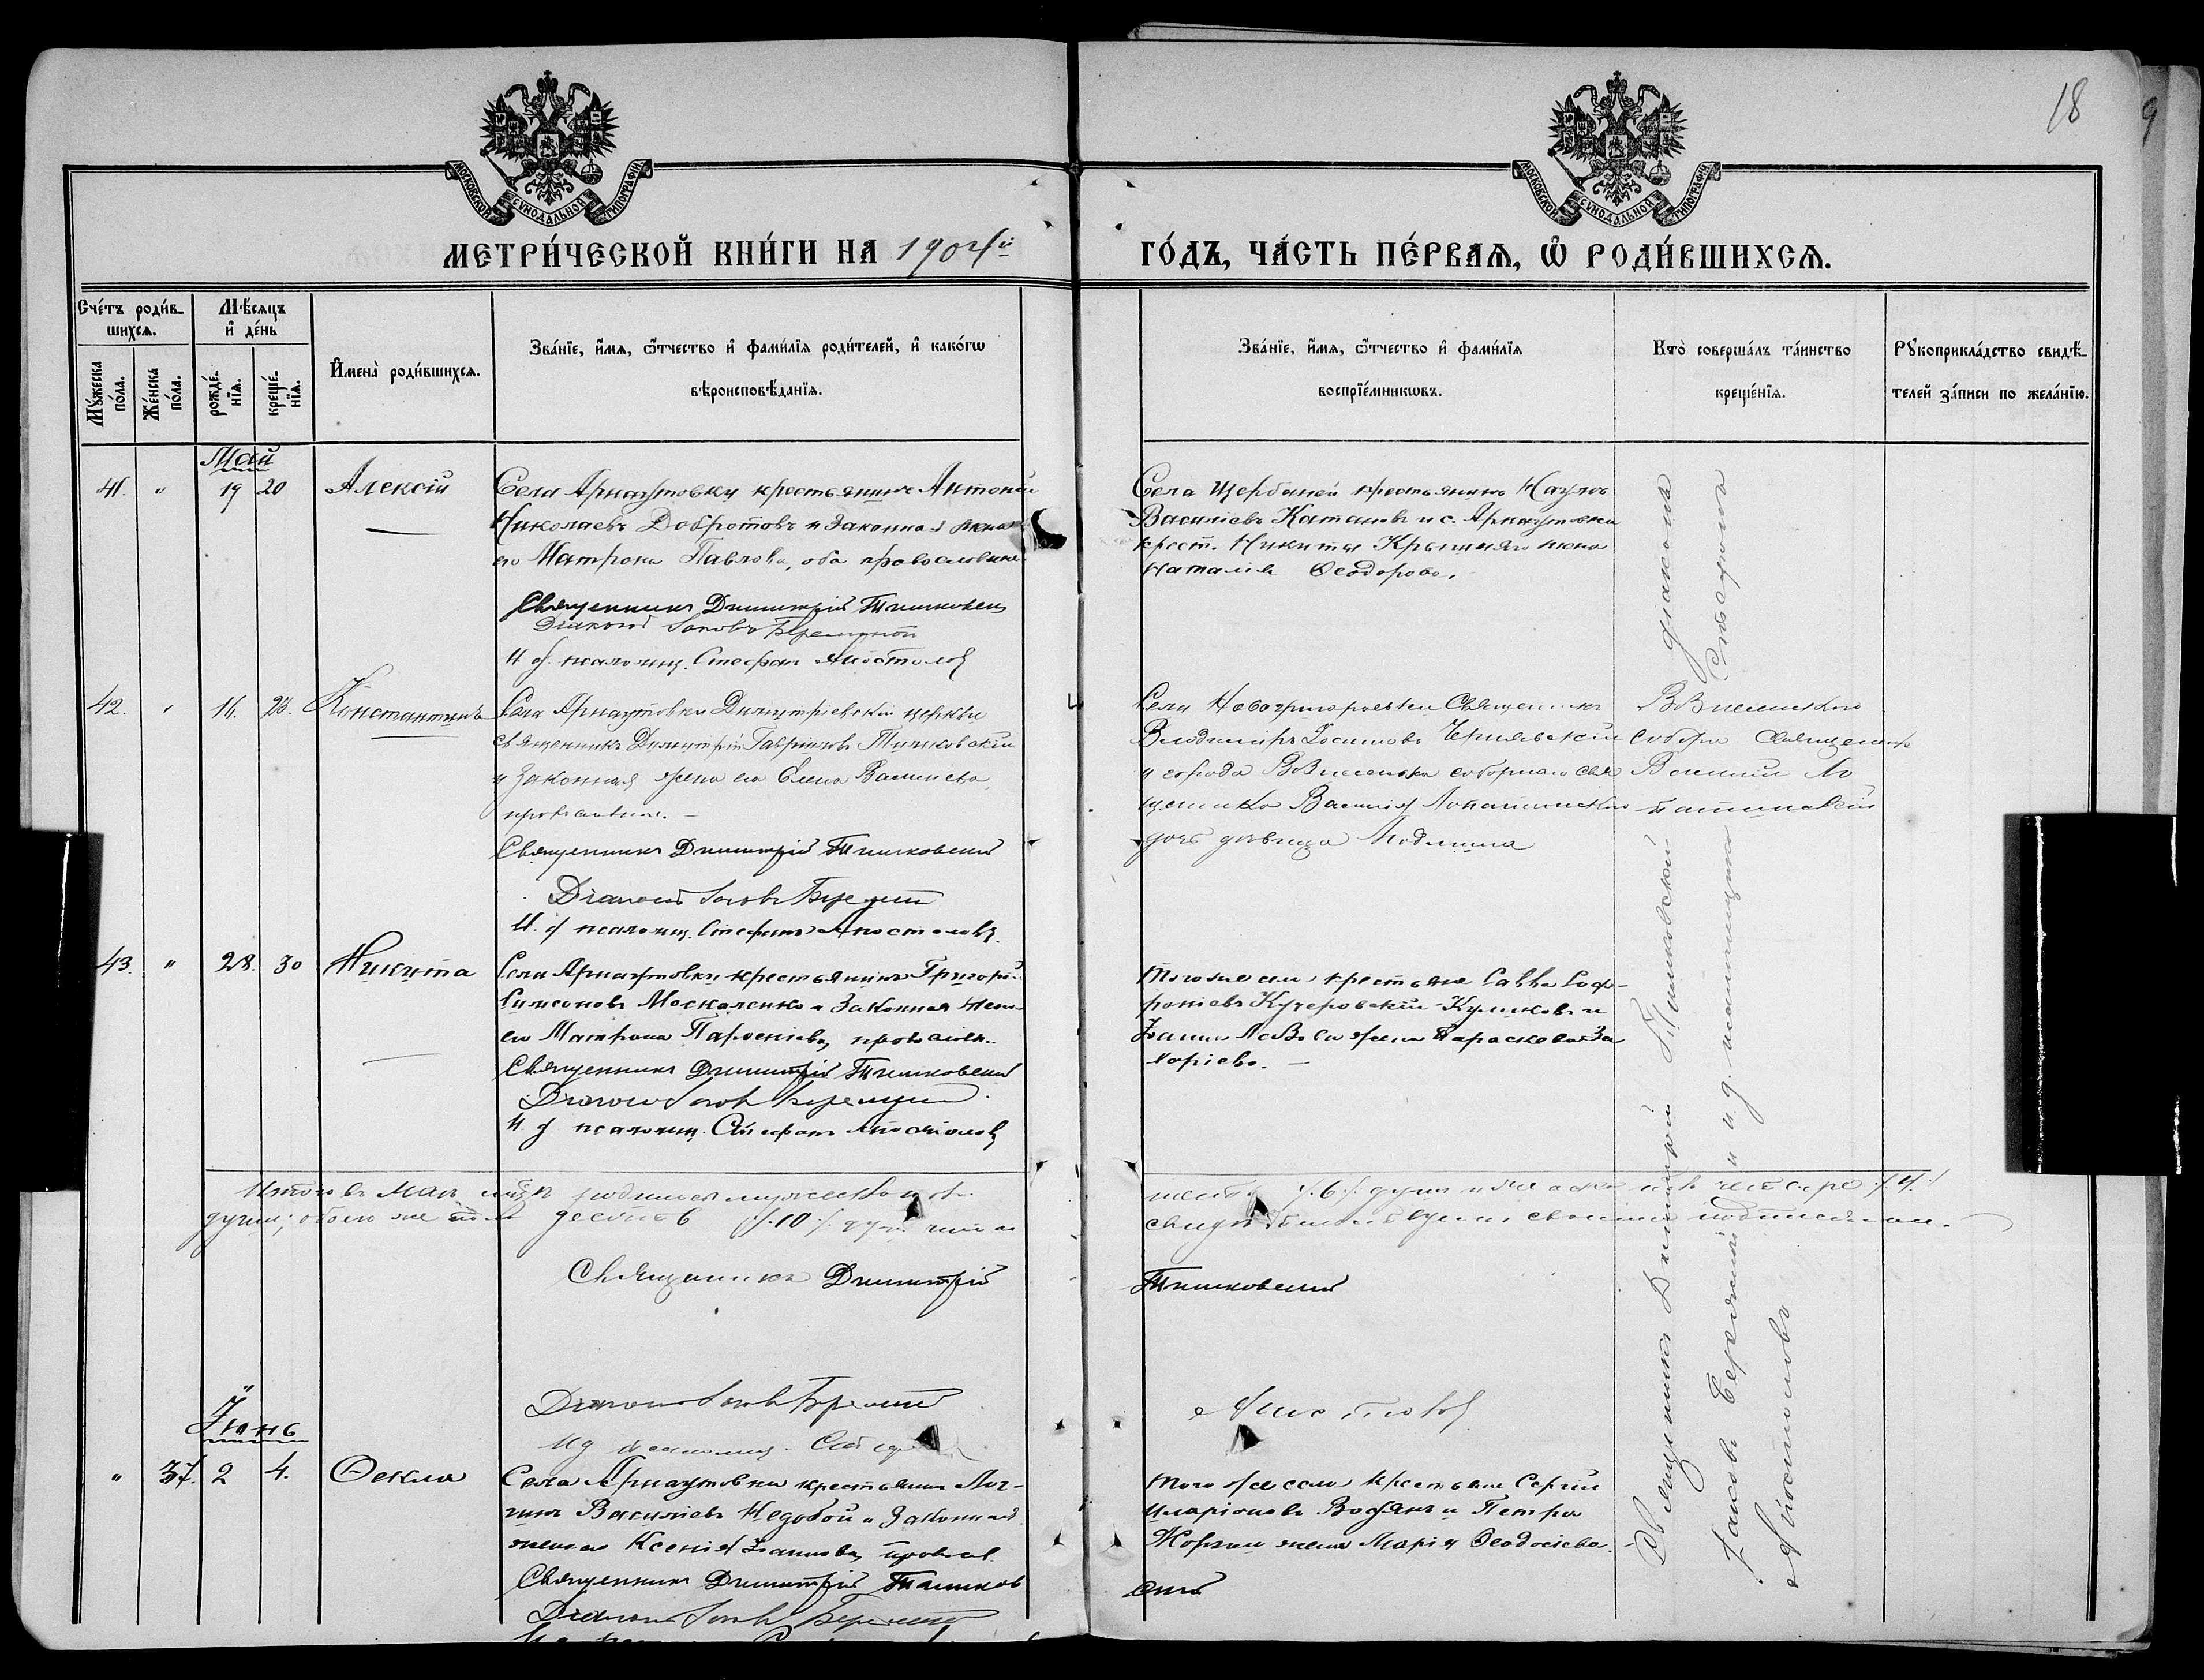 18
9
МОСКОВСКОЙ СѴНОДАЛЬНОЙ ТИПОГРАФІИ
МОСКОВСКОЙ СѴНОДАЛЬНОЙ ТИПОГРАФІИ
МЕТРИ́ЧЕСКОЙ КНИ́ГИ НА 1904й
ГО́ДЪ, ЧА́СТЬ ПЕ́РВАѦ, Ѡ҆ РОДИ́ВШИХСѦ.
Сче́тъ роди́в-
шихсѧ.
Мѣ́сѧцъ
и҆ де́нь
Мꙋ́жеска по́ла.
Же́нска по́ла.
рожде́-нїѧ.
креще́-нїѧ.
И҆мена̀ роди́вшихсѧ.
Зва́нїе, и҆́мѧ, ѻ҆́тчество и҆ фами́лїѧ роди́телей, и҆ како́гѡ
вѣроисповѣ́данїѧ.
Зва́нїе, и҆́мѧ, ѻ҆́тчество и҆ фами́лїѧ
воспрїе́мникѡвъ.
Кто̀ соверша́лъ та́инство
креще́нїѧ.
Рꙋкоприкла́дство свидѣ́-
телей за́писи по жела́нїю.
Май
41. " 19 20 Алексій
Села Арнаутовки крестьянинъ Антоній
Николаевъ Добротовъ и законная жена
его Матрона Павлова, оба православные
Священникъ Димитрій Тишковскій
Діаконъ Іаковъ
И. д. псаломщ. Стефан Апостоловъ
Села Щербаней крестьянинъ Наумъ
Василіевъ Катановъ и с. Арнаутовки
крест. Никиты жена
Наталія Ѳеодорова.
42. " 16. 23. Константинъ
Села Арнаутовки Димитріевской церкви
священникъ Димитрій Гавріиловъ Тишковскій
и законная жена его Елена Василіева,
православные.
Священникъ Димитрій Тишковскій
Діаконъ Іаковъ
И. д. псаломщ. Стефанъ Апостоловъ.
Села Новогригорьевки Священникъ
Владиміръ Чернявскій
и города Вознесенска соборнаго свя
щенника Василія Лопатинскаго
дочь дѣвица
Вознесенскаго
собора священникъ
Василій Ло
патинскій
43. " 28. 30 Никита
Села Арнаутовки крестьянинъ Григорій
Симеоновъ Москаленко и законная жена
его Матрона Парѳеніева, православ.
Священникъ Димитрій Тишковскій
Діаконъ Іаковъ
И. д. псаломщ. Стефанъ Апостоловъ
Того же села крестьяне Савва Соф-
роніевъ Кучеровскій-Куликовъ и
жена Параскева За
харіева.
Итого въ Маѣ мѣсяцѣ родилось мужеска пола
шесть /.6./ душъ и женска пола четыре /.4./
души; обоего же пола десять /.10./ душъ
свидѣтельствуемъ своими подписями.
Священникъ Димитрій
Тишковскій
Діаконъ Іаковъ
И д псаломщ. Стефанъ
Апостоловъ
Іюнь
" 37. 2 4. Ѳекла
Села Арнаутовки крестьянинъ Лог-
гинъ Василіевъ Недобой и законная
жена Ксенія Іоаннова, правосл.
Священникъ Димитрій Тишков
скій
Діаконъ Іаковъ
Того же села крестьяне Сергій
Иларіоновъ и Петра
жена Марія Ѳеодосіева.
Священникъ Димитрій Тишковскій діакона
Іаковъ и и. д. псаломщика Стефана
Апостоловъ